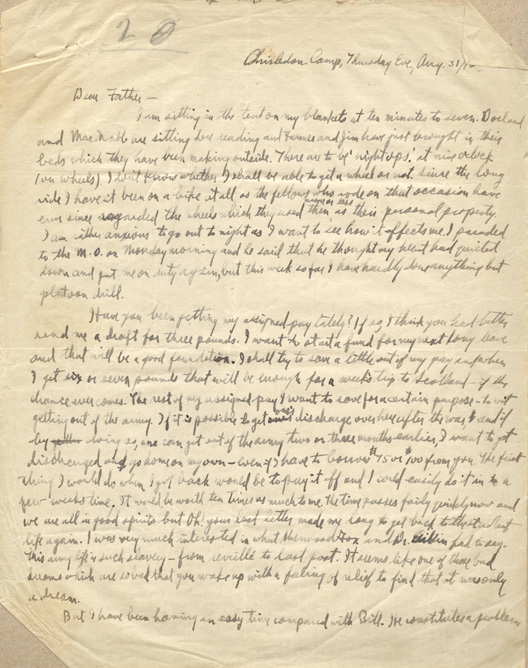 20
Chisledon Camp, Thursday Eve, Aug. 31/
Dear Father —
I am sitting in the tent on my blankets at ten minutes to seven. Dorland
and MacNabb are sitting here reading and and Jim have just brought in their
beds which they have been making outside. There are to be 'night ops.' at nine o'clock
(on wheels). I don't know whether I shall be able to get a wheel or not. Since the long
ride I haven't been on a bike at all as the fellows who rode on that occasion have
ever since regarded the wheels which they used then as their personal property.
more or less
I am rather anxious to go out to night as I want to see how it effects me. I paraded
to the M.O. on Monday morning and he said that he thought my heart had quieted
down and put me on duty again, but this week so far I have hardly done anything but
platoon drill.
Have you been getting my assigned pay lately? If so, I think you had better
send me a draft for three pounds. I want to start a fund for my next long leave
and that will be a good foundation. I shall try to save a little out of my pay and when
I get six or seven pounds that will be enough for a week's trip to Scotland — if the
chance ever comes. The rest of my assigned pay I want to save for a certain purpose — to wit
getting out of the army. If it is possible to get one's discharge over here after the war, and if
by doing so, one can get out of the army two or three months earlier, I want to get
discharged and go home on my own — even if I have to borrow $75 or $100 from you. The first
thing I would do when I got back would be to pay it off and I could easily do it in a
few weeks time. It would be worth ten times as much to me. The time passes fairly quickly now and
we are all in good spirits but Oh! your last letter made me long to get back to that
life again. I was very much interested in what and Dr. had to say.
This army life is such slavery — from reveille to last post. It seems like one of those bad
dreams which are so vivid that you wake up with a feeling of relief to find that it was only
a dream.
But I have been having an easy time compared with Bill. He constitutes a problem